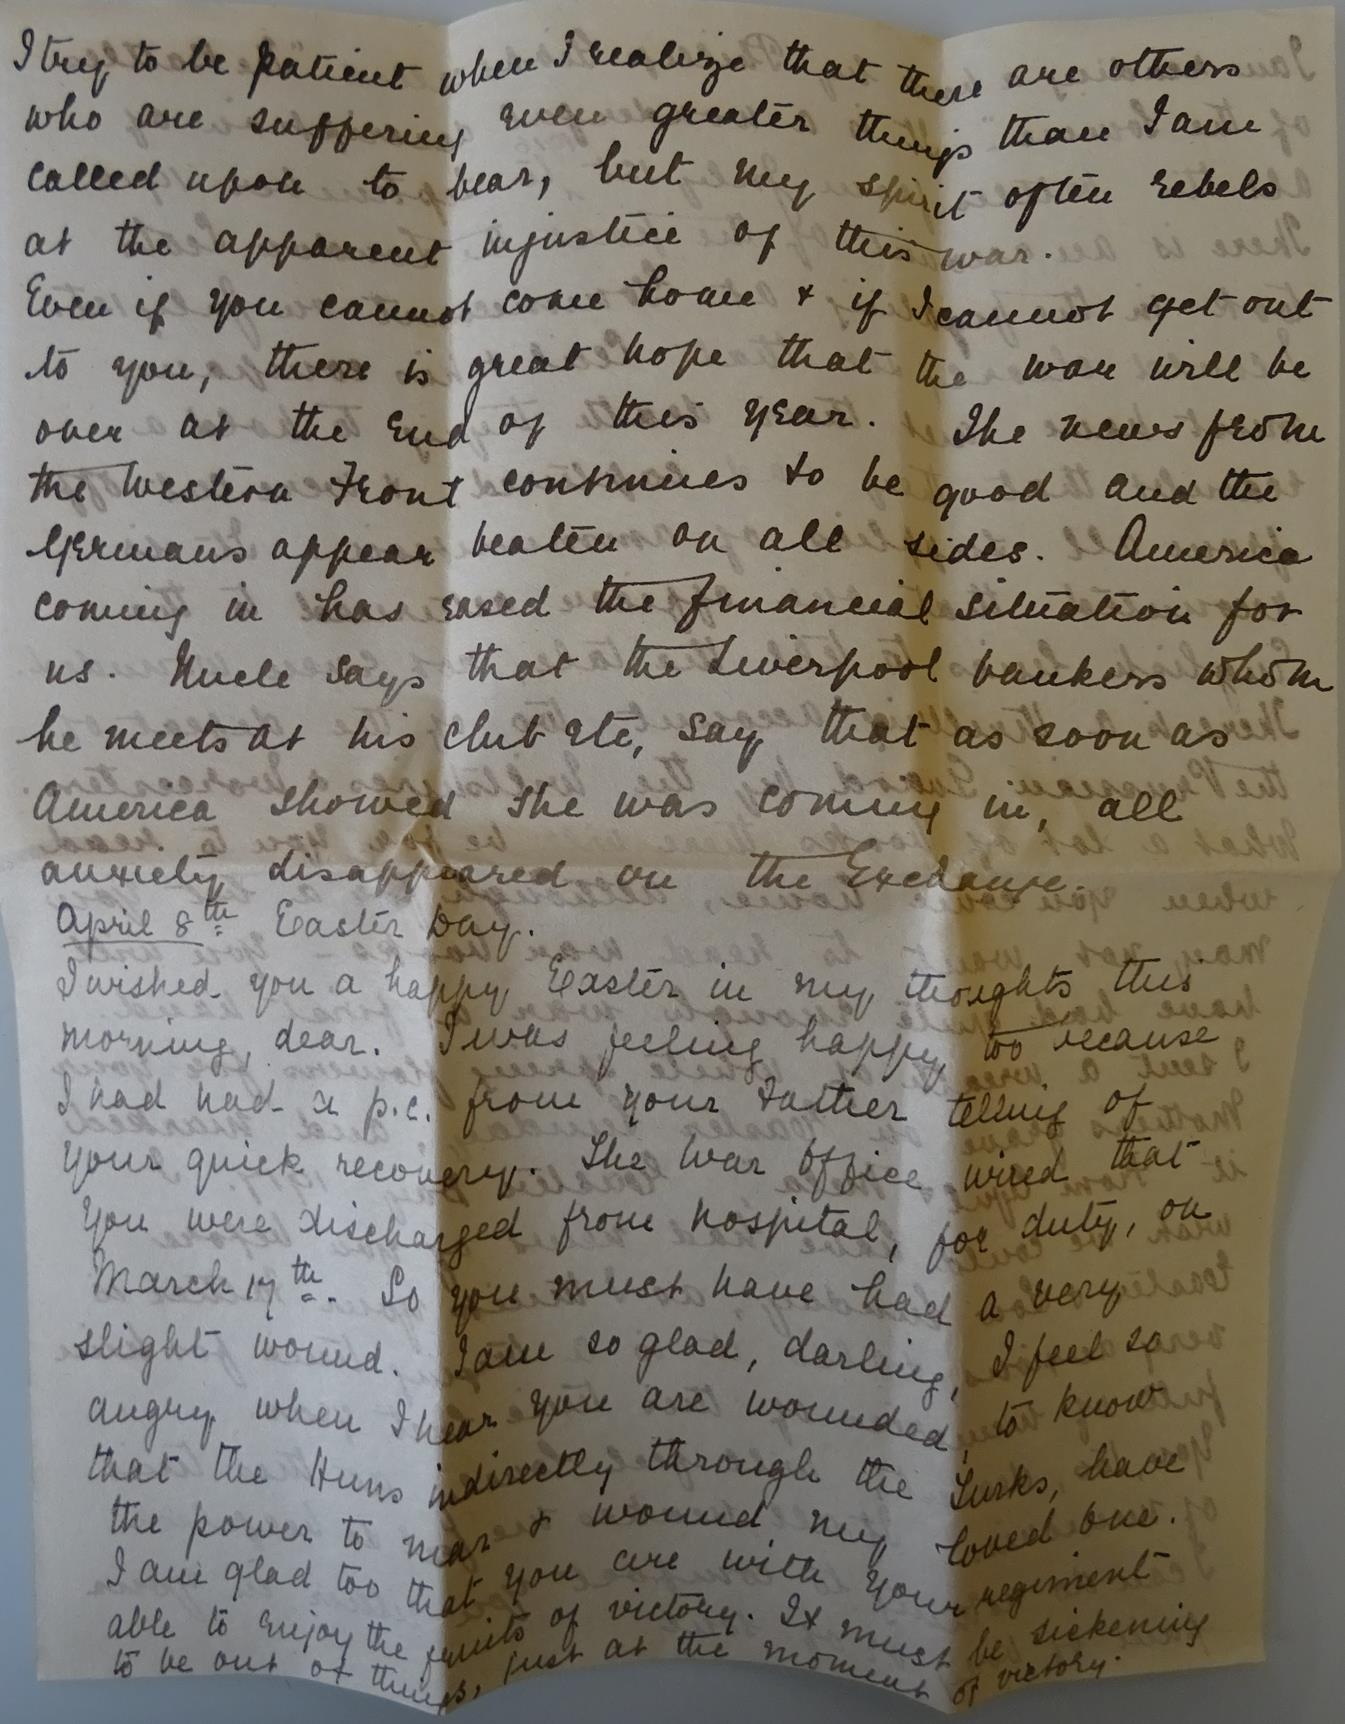 I try to be patient when I realize that there are others
who are suffering even greater things than I am
called upon to bear, but my spirit often rebels
at the apparent injustice of this war.
Even if you cannot come home & if I cannot get out
to you, there is great hope that the war will be
over at the end of this year. The news from
the Western Front continues to be good and the
Germans appear beaten on all sides. America
coming in has eased the financial situation for
us. Uncle says that the Liverpool bankers whom
he meets at his club etc, say that as soon as
America showed she was coming in, all
anxiety disappeared on the Exchange.
April 8th Easter Day.
I wished you a happy Easter in my thoughts this
morning, dear. I was feeling happy too because
I had had a p.c. from your Father telling of
your quick recovery. The War Office wired that
you were discharged from hospital, for duty, on
March 17th. So you must have had a very
slight wound. I am so glad, darling, I feel so
angry when I hear you are wounded, to know
that the Huns indirectly through the Turks, have
the power to mar & wound my loved one.
I am glad too that you are with your regiment
able to enjoy the fruits of victory. It must be sickening
to be out of things, just at the moment of victory.